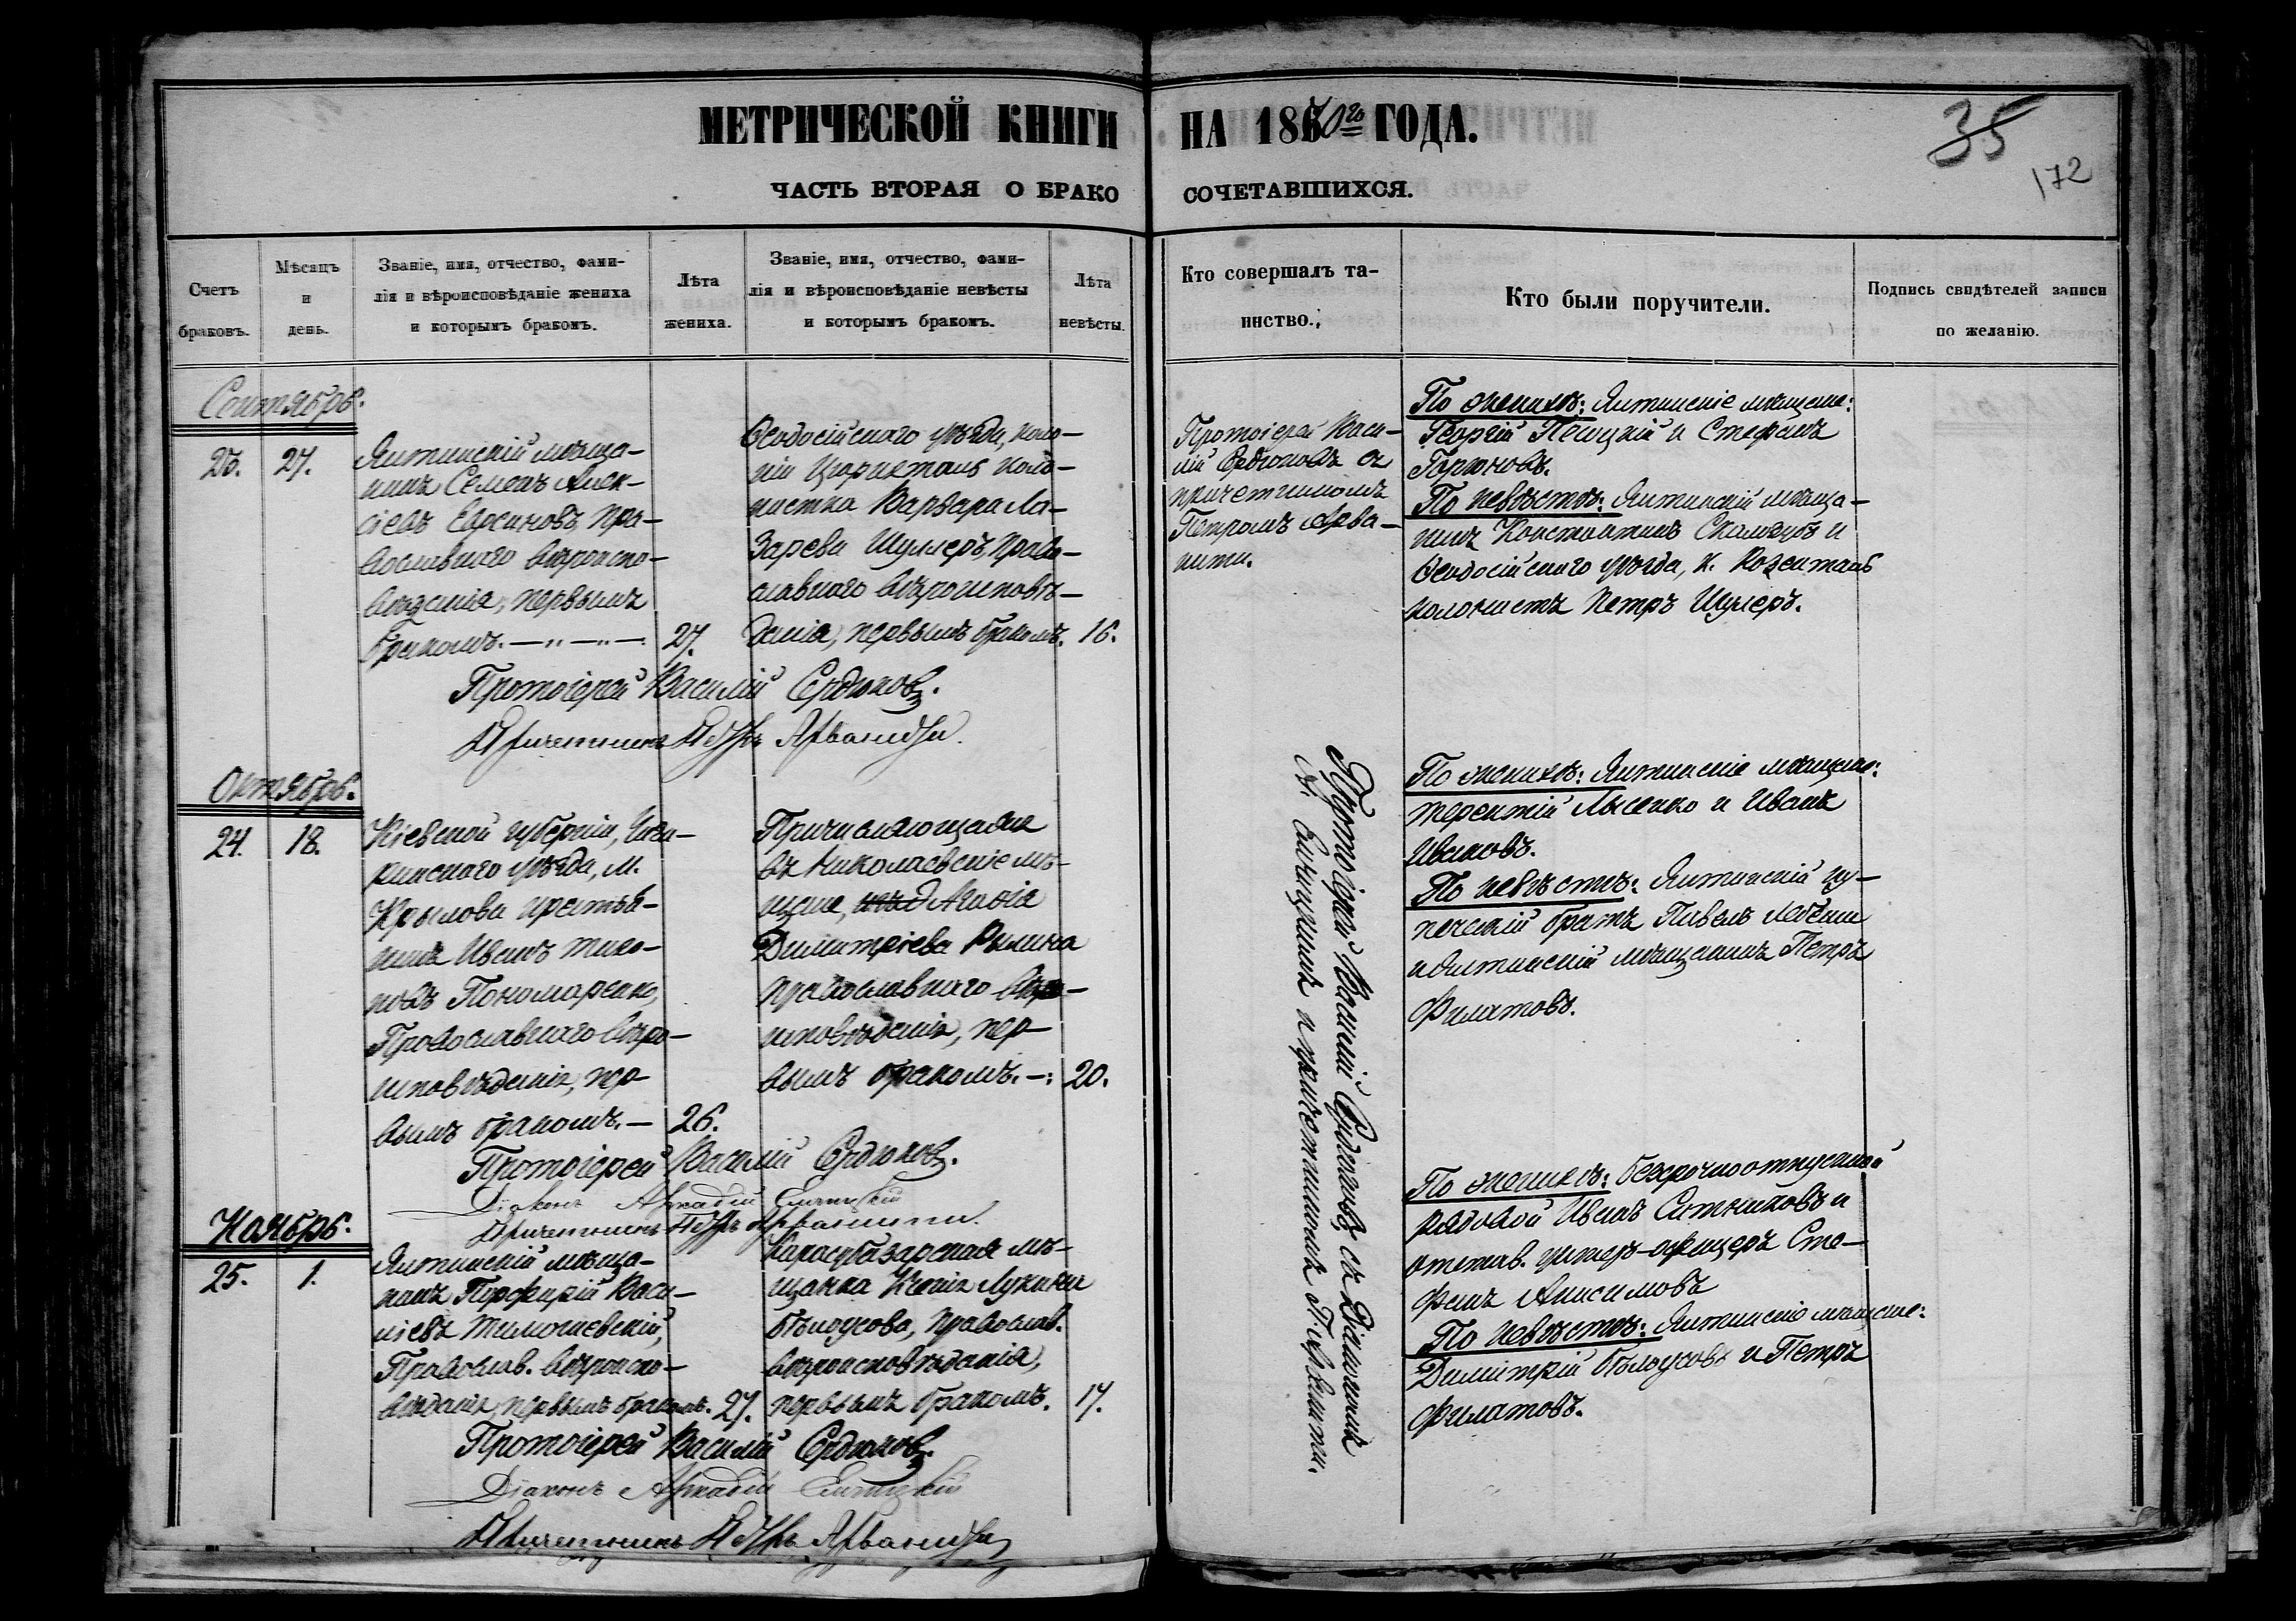 МЕТРИЧЕСКОЙ КНИГИ НА 1870го ГОДА.
35
172
ЧАСТЬ ВТОРАЯ О БРАКОСОЧЕТАВШИХСЯ.
Счетъ браковъ.
Мѣсяцъ и день.
Званіе, имя, отчество, фами-
лія и вѣроисповѣданіе жениха
и которымъ бракомъ.
Лѣта
жениха.
Званіе, имя, отчество, фами-
лія и вѣроисповѣданіе невѣсты
и которымъ бракомъ.
Лѣта
невѣсты.
Кто совершалъ та-
инство.
Кто были поручители.
Подпись свидѣтелей записи
по желанію.
Сентябрь.
23. 27.
Ялтинскій мѣща-
нинъ Семенъ Алек-
сіевъ пра-
вославнаго вѣроиспо-
вѣданія, первымъ
бракомъ. 27.
Ѳеодосійскаго уѣзда, коло-
ніи Цюрихталь коло-
нистка Варвара Ла-
зарева Шуллеръ, право-
славнаго вѣроисповѣ-
данія, первымъ бракомъ. 16.
Протоіерей Васи-
лій Сердюковъ съ
причетникомъ
Петромъ Арва-
нити.
По женихѣ: Ялтинскіе мѣщане:
Георгій и Стефанъ
Горюновъ.
По невѣстѣ: Ялтинскій мѣща-
нинъ Константинъ и
Ѳеодосійскаго уѣзда, к. Розенталь
колонистъ Петръ Шулеръ.
Протоіерей Василій Сердюковъ.
Причетникъ Петръ Арваниди.
Октябрь.
24. 18.
Кіевской губерніи, Чиги-
ринскаго уѣзда, м.
Крылова крестья-
нинъ Иванъ Тихо-
новъ Пономаренко,
Православнаго вѣро-
исповѣданія, пер-
вымъ бракомъ. — 26.
Причисляющаяся
въ Николаевскіе мѣ-
щане, Агаѳія
Димитріева Рылина
православнаго вѣро-
исповѣданія, пер-
вымъ бракомъ. 20.
Протоіерей Василій Сердюковъ съ Діакономъ
А. Синицкимъ и причетникомъ П. Арванити.
По женихѣ: Ялтинскіе мѣщане:
Терентій Лысенко и Иванъ
Ивановъ.
По невѣстѣ: Ялтинскій ку-
печескій братъ Павелъ
и Ялтинскій мѣщанинъ Петръ
Филатовъ.
Протоіерей Василій Сердюковъ.
Діаконъ Аркадій Синицкій
Причетникъ Петръ Арванити.
Ноябрь.
25. 1.
Ялтинскій мѣща-
нинъ Порфирій Васи-
ліевъ Тимошевскій,
Православ. вѣроиспо-
вѣданія, первымъ бракомъ. 27.
Карасубазарская мѣ-
щанка Ксенія Лукина
Бѣлоусова, Православ.
вѣроисповѣданія,
первымъ бракомъ. 17.
По женихѣ: безсрочноотпускной
рядовой Иванъ Сотниковъ и
отстав. унтеръ-офицеръ Сте-
фанъ Анисимовъ
По невѣстѣ: Ялтинскіе мѣщане:
Димитрій Бѣлоусовъ и Петръ
Филатовъ.
Протоіерей Василій Сердюковъ.
Діаконъ Аркадій Синицкій
Причетникъ Петръ Арваниди